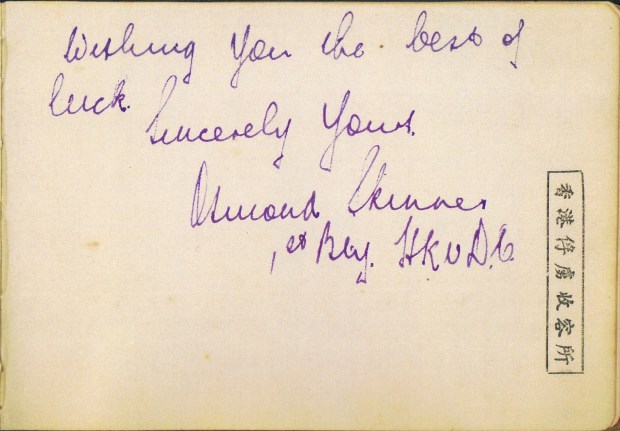 Wishing You the best of
luck.
Sincerely Yours.
Osmond Skinner
1st Bty. HKVDC
香港俘虜收容所